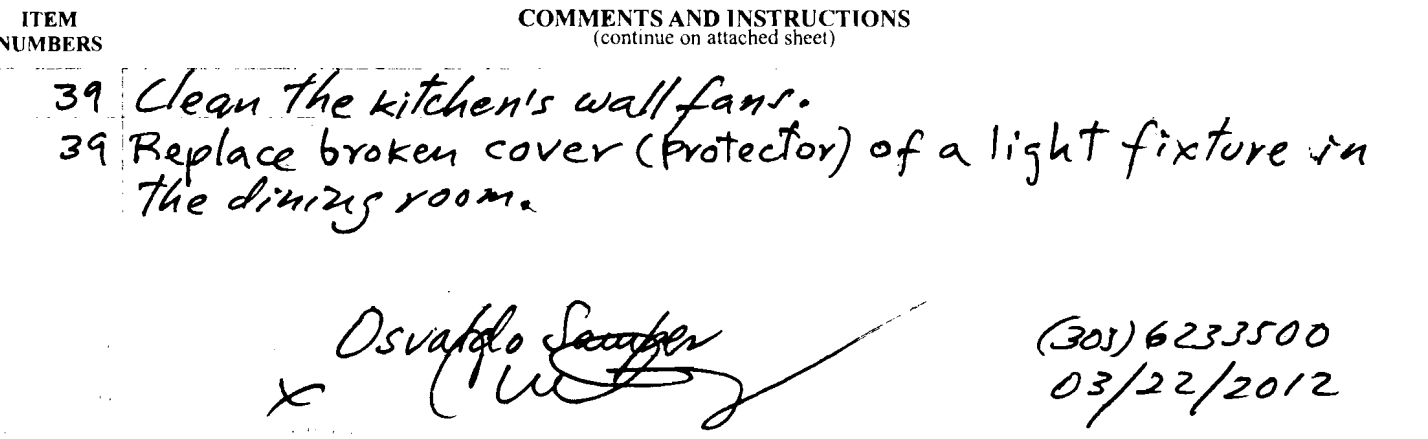 ITEM NUMBERS
COMMENTS AND INSTRUCTIONS
(continue on attached sheet)
39 Clean the kitchen's wall fans.
39 Replace broken cover (protector) of a light fixture in
the dining room.
Osvaldo
(305) 6233500
x
03/22/2012